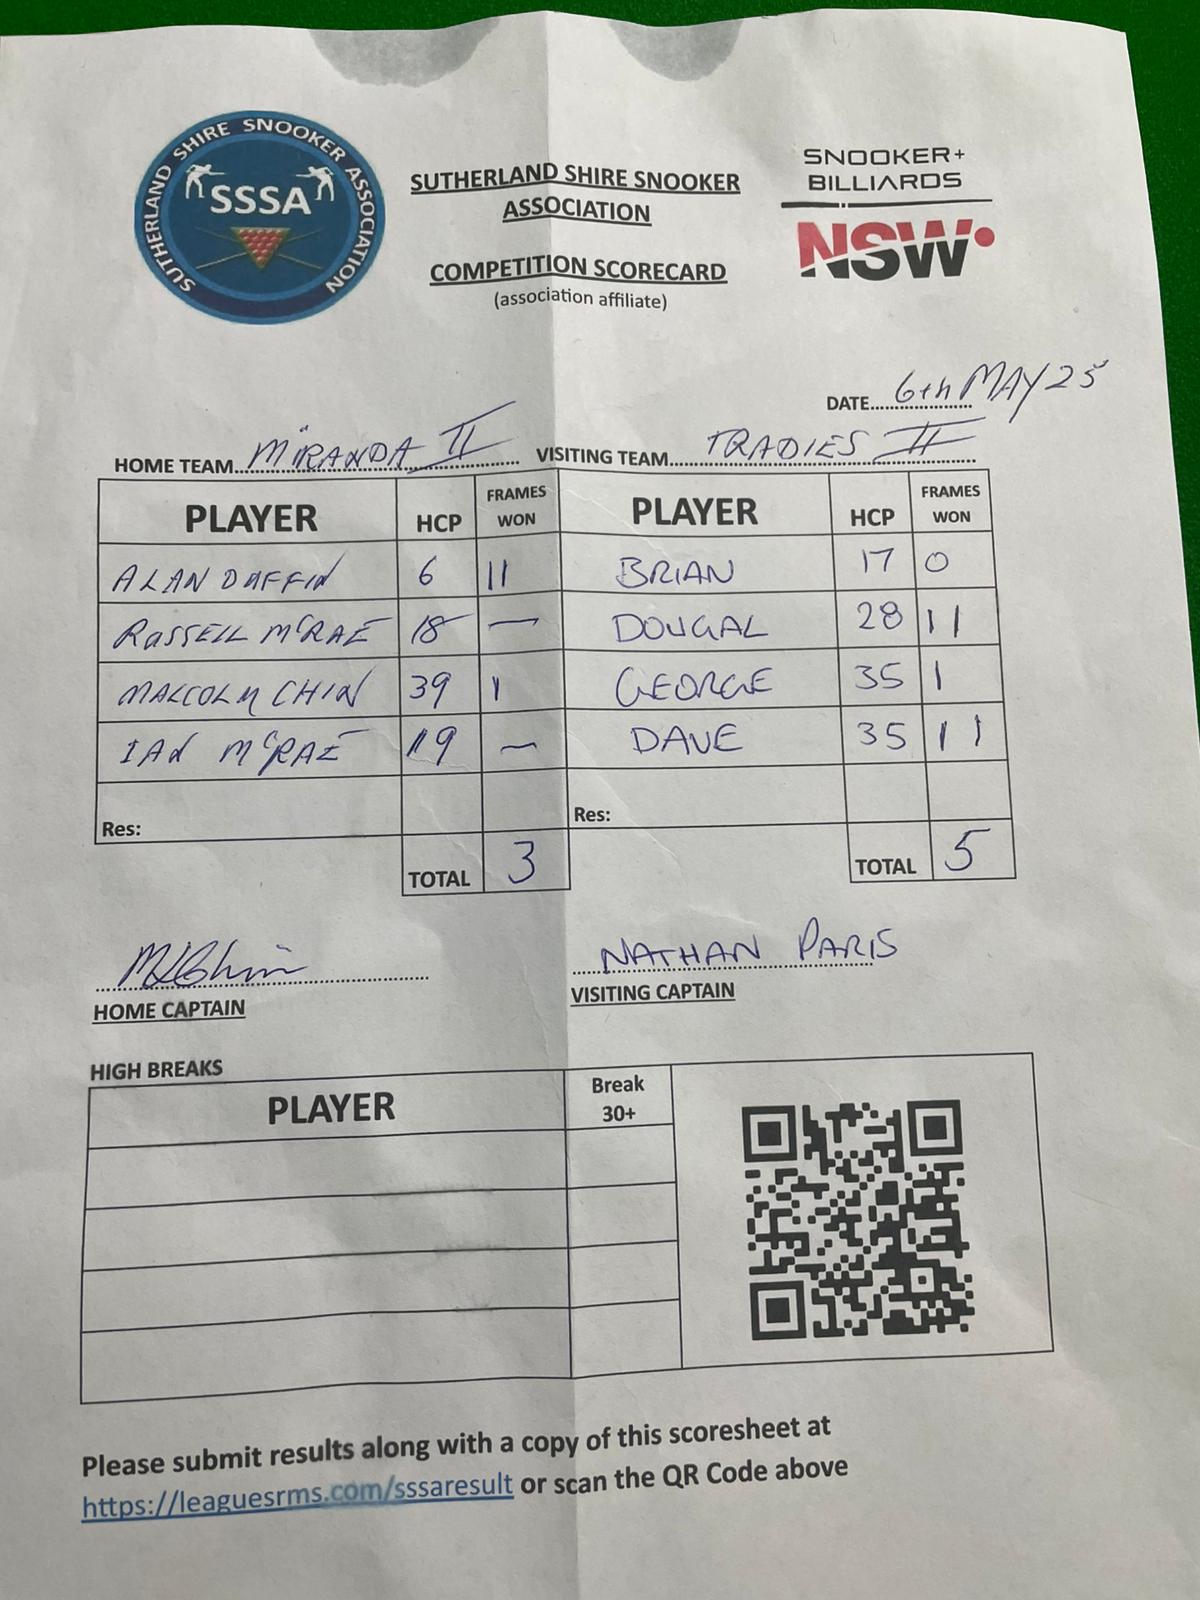 SUTHERLAND SHIRE SNOOKER ASSOCIATION
SSSA
SUTHERLAND SHIRE SNOOKER
ASSOCIATION
COMPETITION SCORECARD
(association affiliate)
SNOOKER+
BILLIARDS
NSW
DATE 6th MAY 25
HOME TEAM MIRANDA II VISITING TEAM TRADIES II
PLAYER HCP FRAMES WON PLAYER HCP FRAMES WON
ALAN DUFFIN 6 11 BRIAN 17 0
RUSSELL McRAE 18 — DOUGAL 28 11
MALCOLM CHIN 39 1 GEORGE 35 1
IAN McRAE 19 — DAVE 35 11
Res: Res:
TOTAL 3 TOTAL 5
NATHAN PARIS
HOME CAPTAIN VISITING CAPTAIN
HIGH BREAKS
PLAYER Break 30+
Please submit results along with a copy of this scoresheet at
https://leaguesrms.com/sssaresult or scan the QR Code above